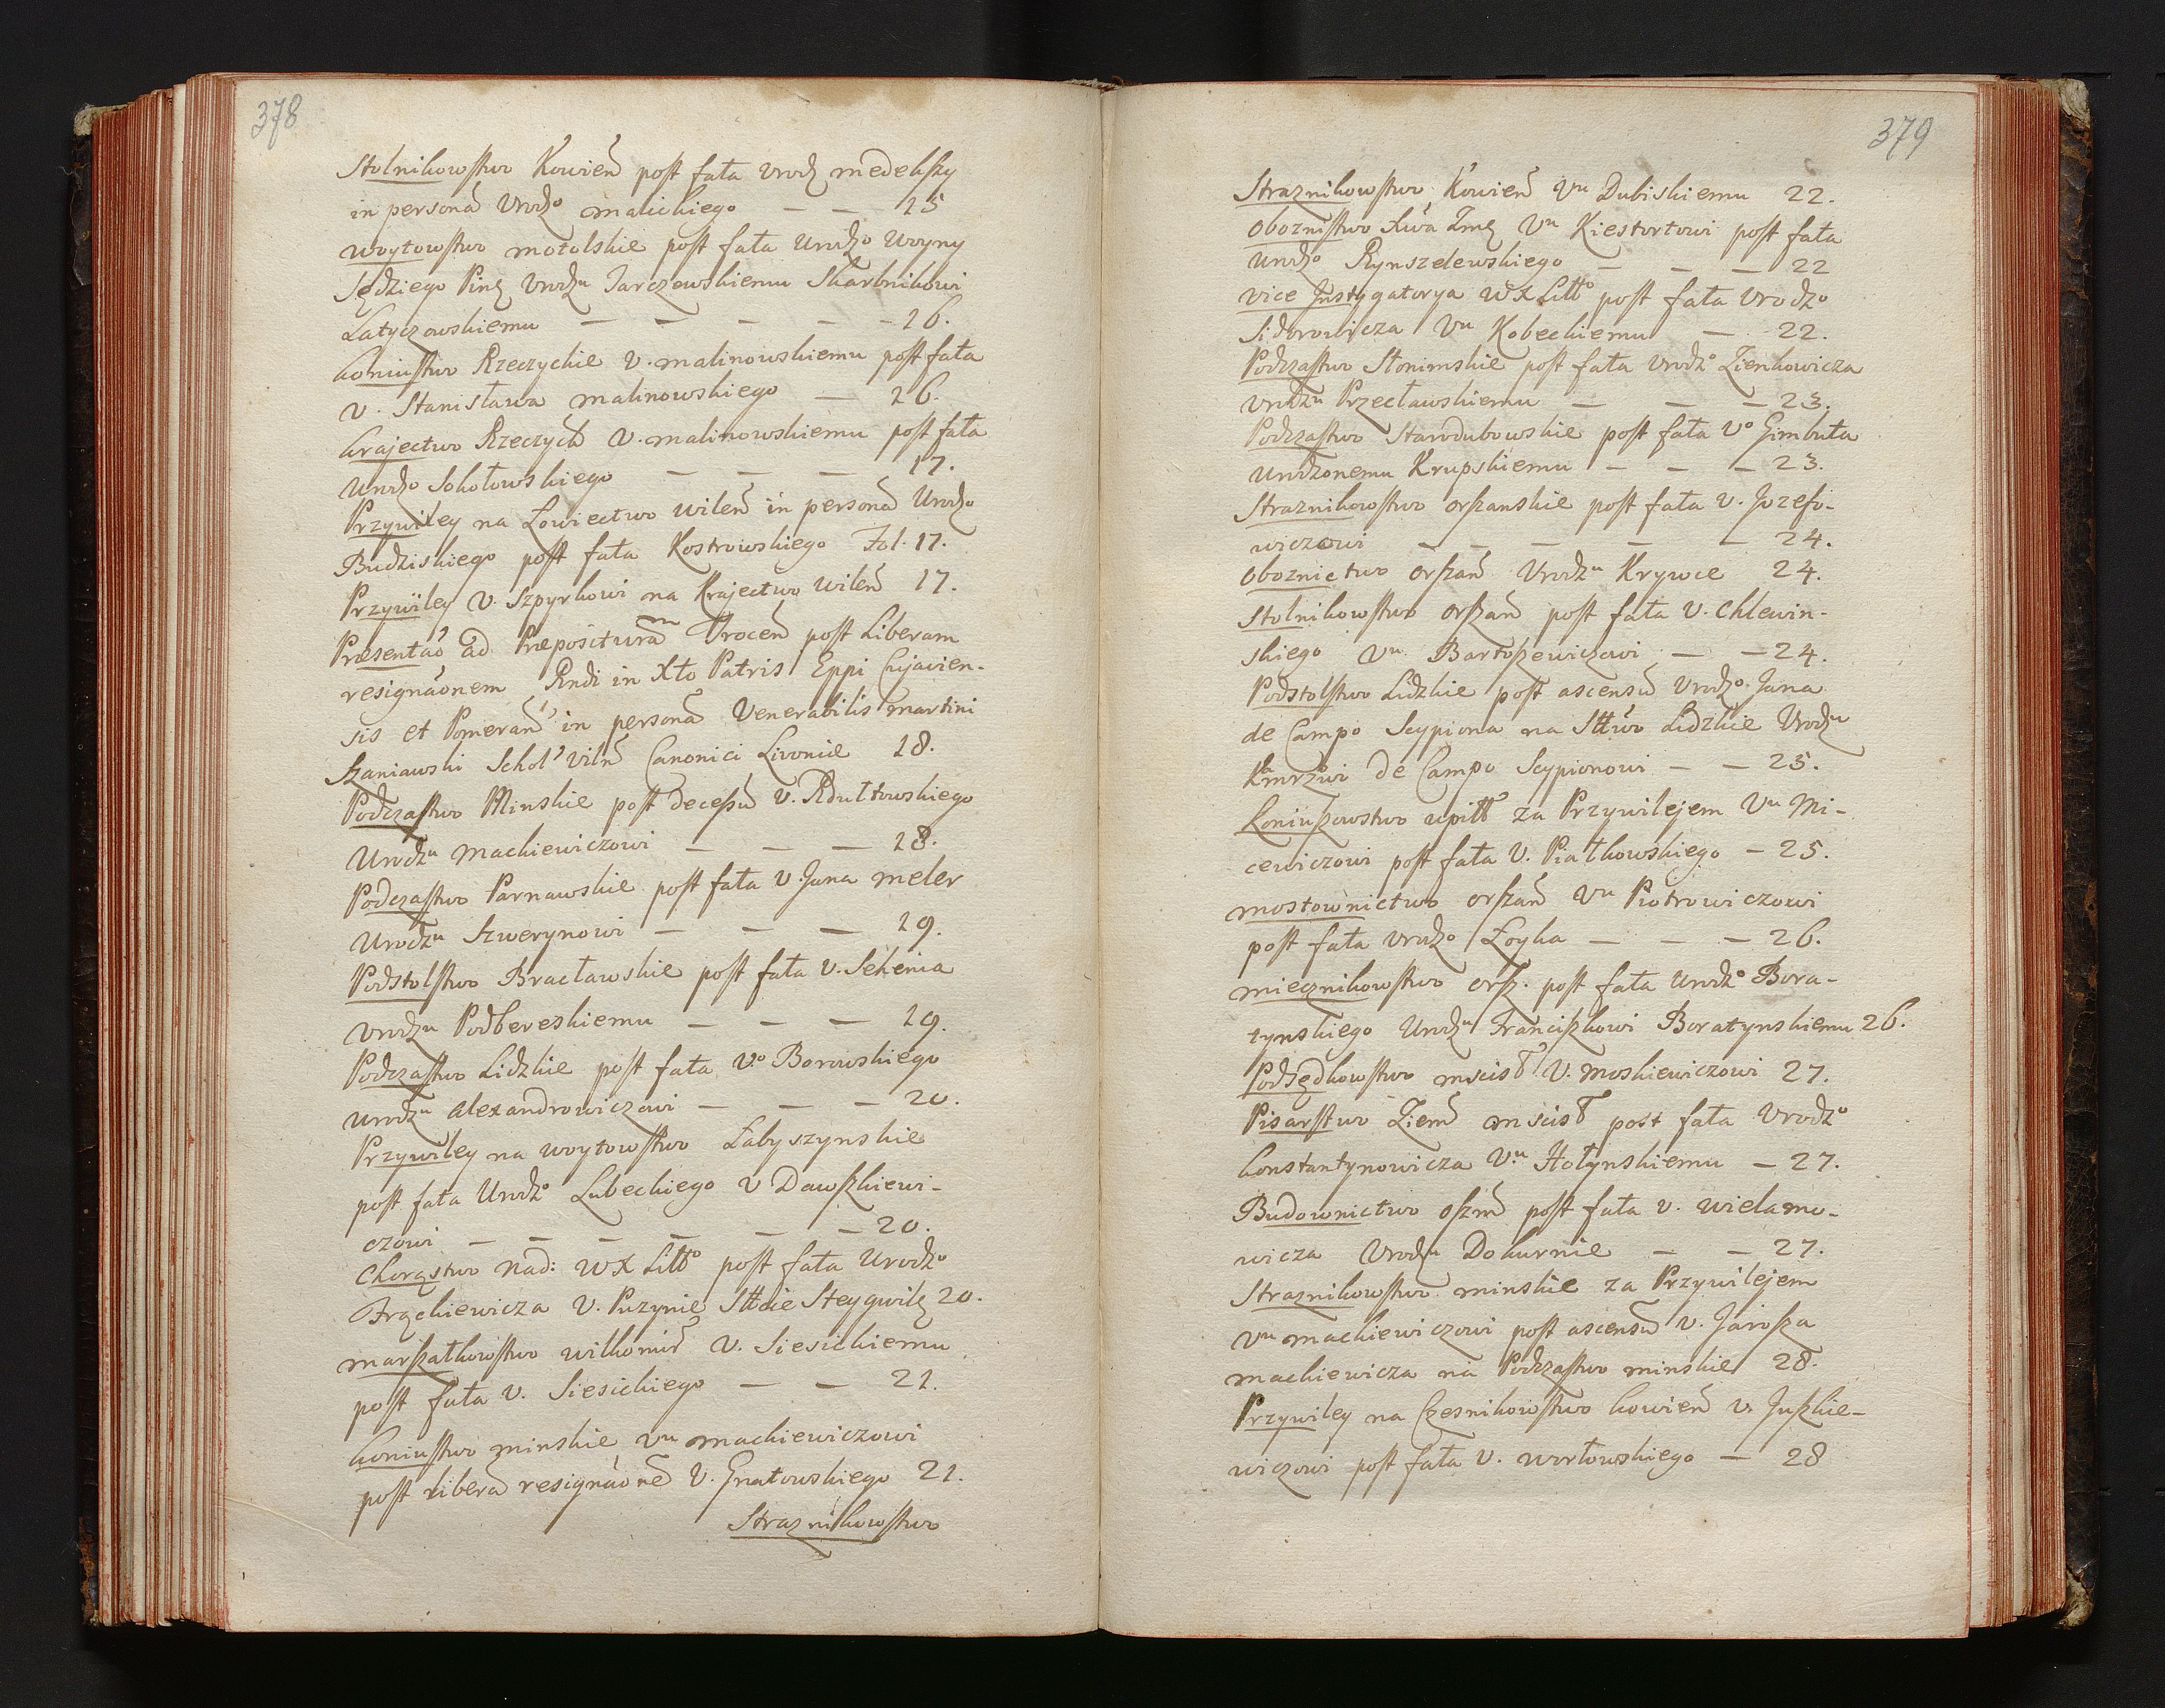 378
Stolnikowstwo Kowień post fata Urodz Medekszy
in personã Urodz͠o Malickiego — — 15
Woytowstwo Motolskie post fata Urodz͠o Woyny
Sędziego Piń Urodz͠u Jarczewskiemu Skarbnikowi
Latyczowskiemu — — — — — 16.
Koniustwo Rzeczyckie U. Malinowskiemu post fata
U. Stanisława Malinowskiego — 16.
Krajectwo Rzeczyck U. Malinowskiemu post fata
Urodz͠o Sokołowskiego — — — 17.
Przywiley na Łowiectwo Wileń in personã Urodz͠o
Budziskiego post fata Kostrowskiego Fol. 17.
Przywiley U. Szpyrkowi na Krajectwo Wileń 17.
Præsentao ad Præposituram Trocen post Liberam
resignaonem Rndi in Xto Patris Eppi Cujavien-
sis et Pomeran in personã Venerabilis Martini
Szaniawski Schol Viln Canonici Livoniæ 18.
Podczastwo Minskie post decessũ U. Rdułtowskiego
Urodz͠u Mackiewiczowi — — — 18.
Podczastwo Parnawskie post fata U. Jana Meler
Urodz͠u Szwerynowi — — — 19.
Podstolstwo Bracławskie post fata U. Sehenia
Urodz͠u Podbereskiemu — — — 19.
Podczastwo Lidzkie post fata U͠o Borowskiego
Urodz͠u Alexandrowiczowi — — — 20.
Przywiley na Woytowstwo Łabyszynskie
post fata Urodz͠o Lubeckiego U Dawszkiewi-
czowi — — — — — — 20.
Chorąstwo Nad: W X Litt͠o post fata Urodz͠o
Frąckiewicza U. Puzynie Sttcie Steygwil 20.
Marszałkowstwo Wiłkomir U. Siesickiemu
post fata U. Siesickiego — — 21.
Koniustwo Minskie U͠u Mackiewiczowi
post liberã resignaonẽ U. Gnatowskiego 21.
Straznikowstwo
379
Straznikowstwo Kowień U͠u Dubiskiemu 22.
Oboznistwo Xwa Żmę U͠u Kiestortowi post fata
Urodz͠o Rynszelewskiego — — — 22
Vice Jnstygatorya W X Litt͠o post fata Urodz͠o
Sidorowicza U͠u Kobeckiemu — 22.
Podczastwo Słonimskie post fata Urodz͠o Zienkowicza
Urodz͠u Przecławskiemu — — — 23.
Podczastwo Starodubowskie post fata U͠o Gimbuta
Urodzonemu Krupskiemu — — — 23.
Straznikowstwo Orszanskie post fata U. Jozefo-
wiczowi — — — — — 24.
Oboznictwo Orszań Urodz͠u Krywce 24.
Stolnikowstwo Orszań post fata U. Chlewin-
skiego U͠u Bartoszewiczowi — — 24.
Podstolstwo Lidzkie post ascensũ Urodz͠o Jana
de Campo Scypiona na Sttwo Lidzkie Urodz͠u
Kamrzwi de Campo Scypionowi — — 25.
Koniuszowstwo Upitt za Przywilejem U͠u Mi-
cewiczowi post fata U. Piatkowskiego — 25.
Mostownictwo Orszań U͠u Piotrowiczowi
post fata Urodz͠o Łoyka — — — 26.
Miecznikowstwo Orsz. post fata Urodz͠o Bora-
tynskiego Urodz͠u Franciszkowi Boratynskiemu 26.
Podsędkowstwo Mscisł U. Moskiewiczowi 27.
Pisarstwo Ziem Mscisł post fata Urodz͠o
Konstantynowicza U͠u Hołynskiemu — 27.
Budownictwo Oszm post fata U. Wielamo-
wicza Urodz͠u Dokurnie — — 27.
Straznikowstwo Minskie za Przywilejem
U͠u Mackiewiczowi post ascensũ U. Jarosza
Mackiewicza na Podczastwo Minskie 28.
Przywiley na Czesnikowstwo Kowień U. Juszkie-
wiczowi post fata U. Worłowskiego — 28